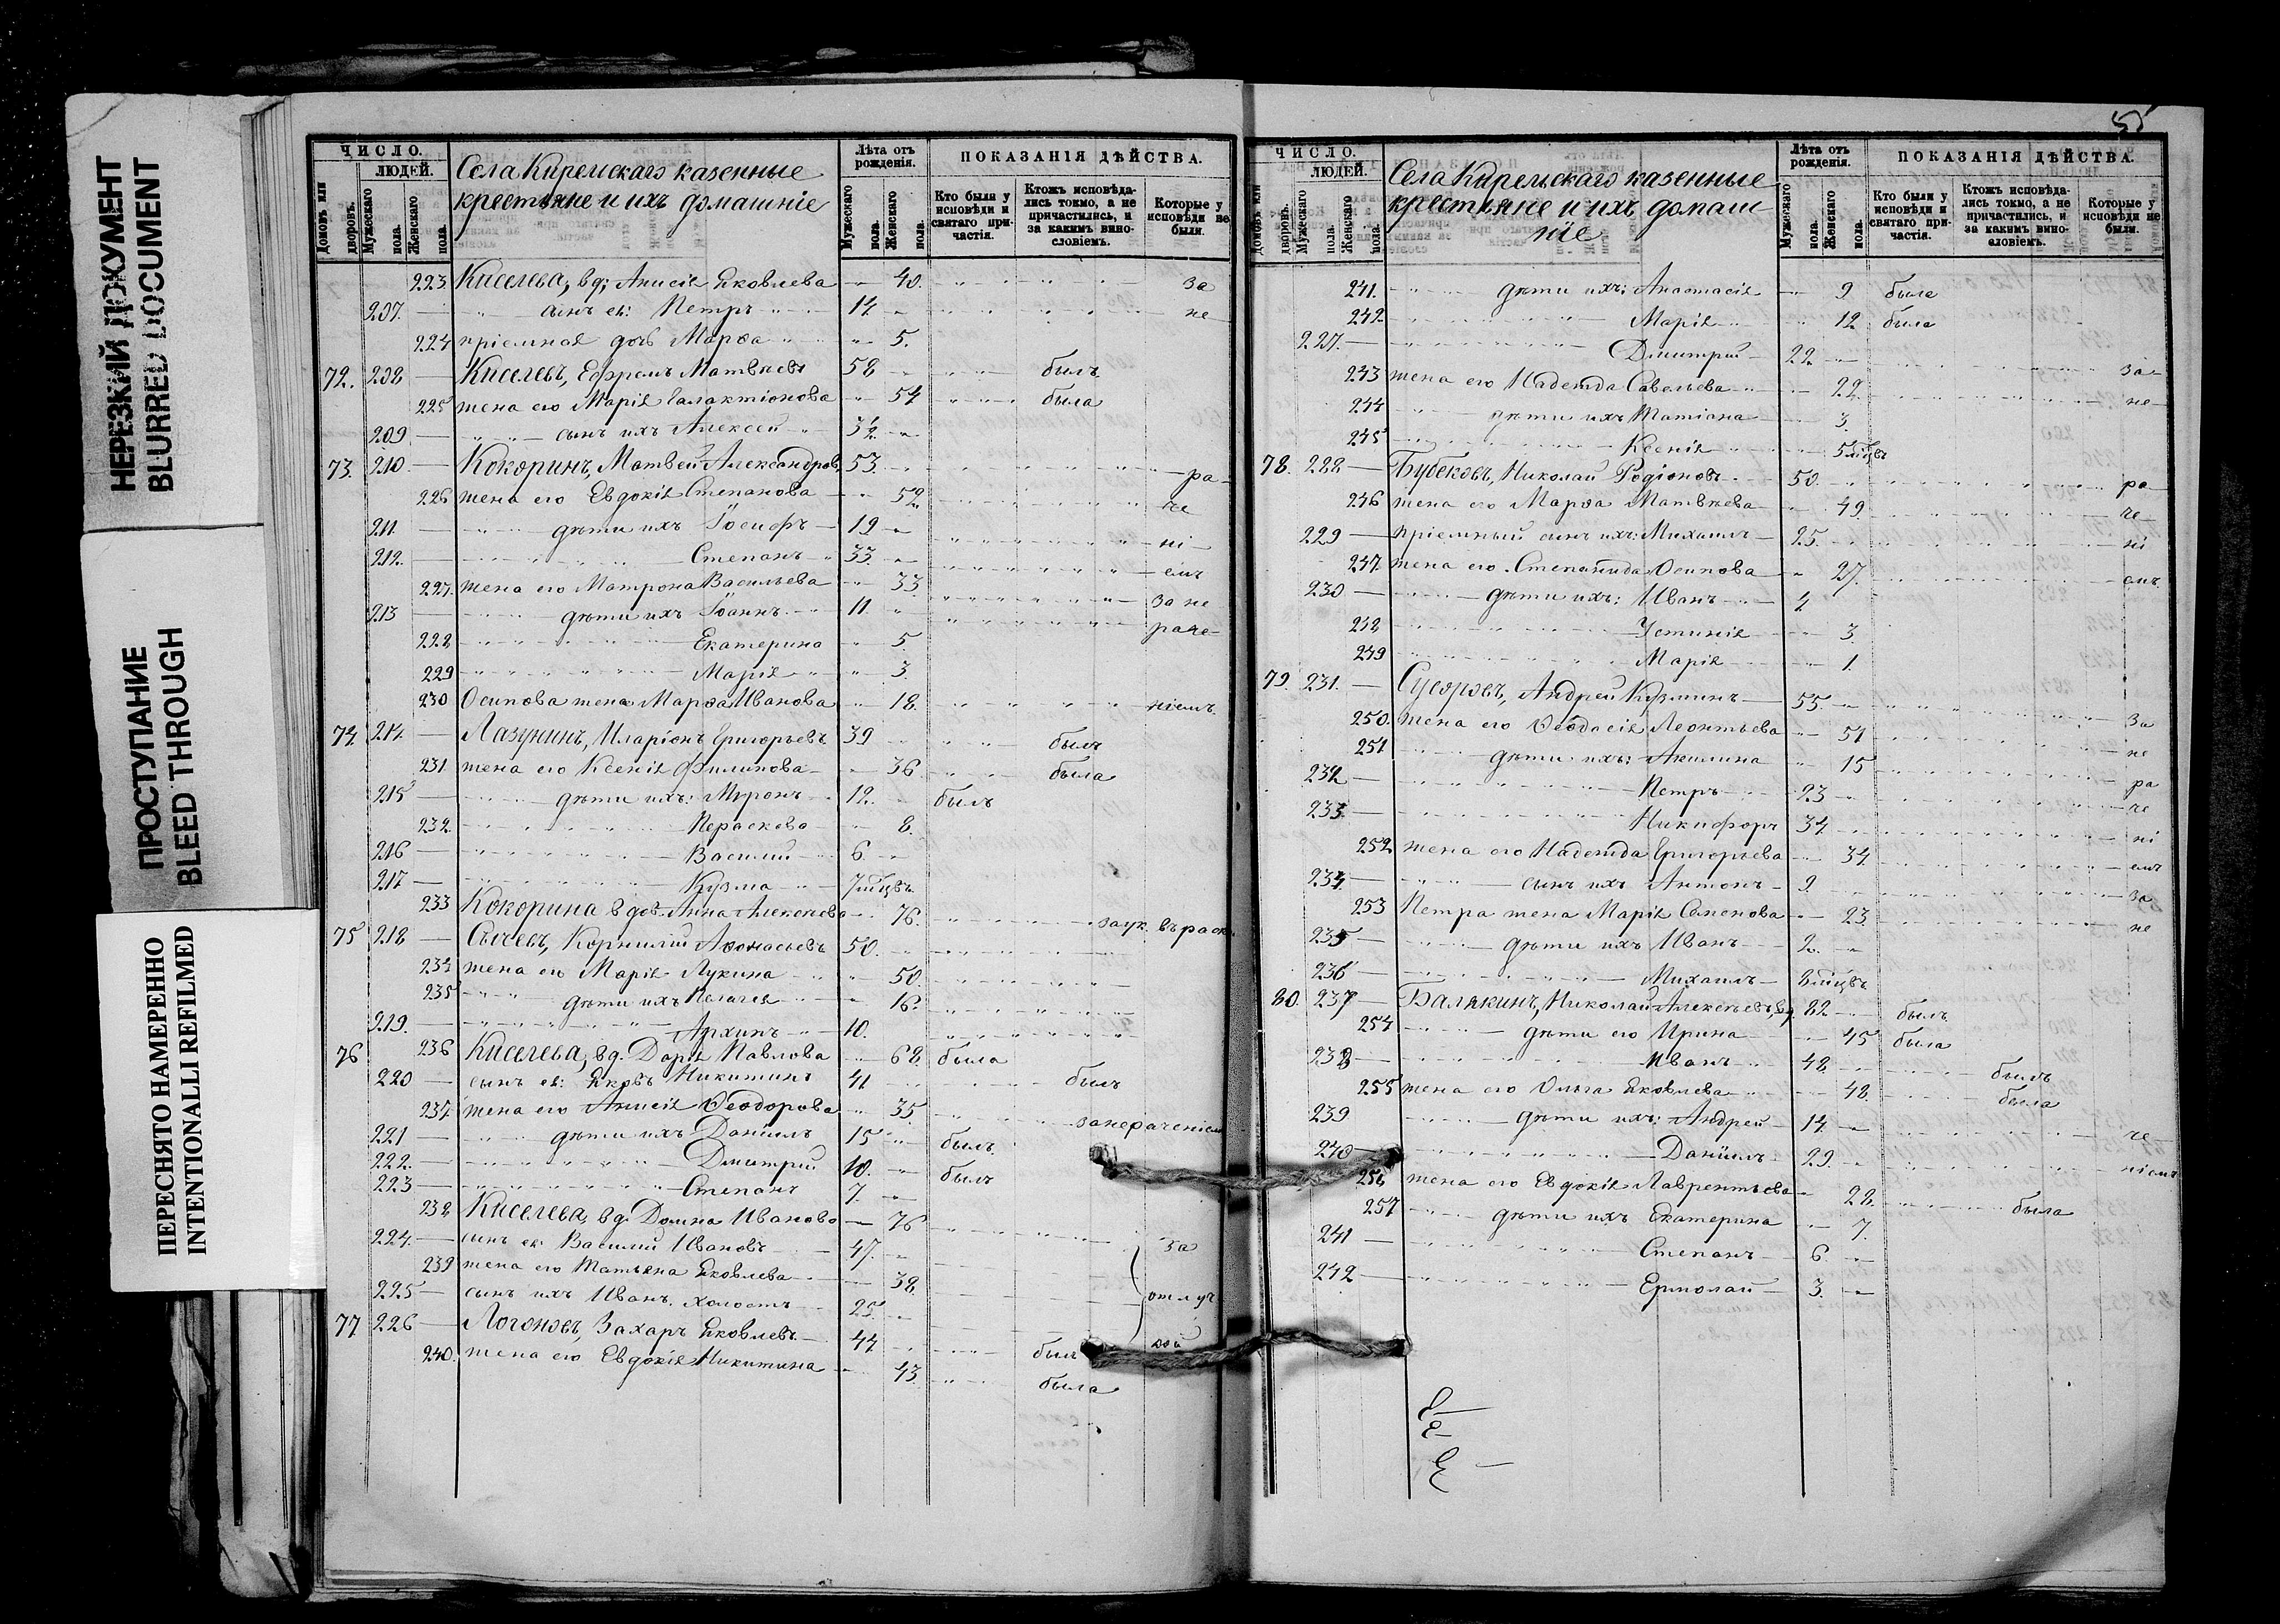 НЕРЕЗКИЙ ДОКУМЕНТ
BLURRED DOCUMENT
ПРОСТУПАНИЕ
BLEED THROUGH
ПЕРЕСНЯТО НАМЕРЕННО
INTENTIONALLI REFILMED
ЧИСЛО.
ЛЮДЕЙ.
Домовъ или дворовъ.
Мужескаго пола.
Женскаго пола.
Села Кирельскаго казенные
крестьяне и ихъ домашніе
Лѣта отъ рожденія.
Мужескаго пола.
Женскаго пола.
ПОКАЗАНІЯ ДѢЙСТВА.
Кто были у исповѣди и святаго причастія.
Ктожъ исповѣдались токмо, а не причастились, и за какимъ винословіемъ.
Которые у исповѣди не были.
223 Киселева, вд; Анисія Яковлева 40. за
207. сынъ ея: Петръ 14 не
224 пріемная дочь Марѳа 5.
72. 208 Киселевъ, Ефремъ Матвѣевъ 58 былъ
225 жена его Марія Галактіонова 54 была
209 сынъ ихъ Алексей 3½
73. 210 Кокоринъ, Матвей Александровъ 53. ра
226 жена его Евдокія Степанова 52 че
211 дѣти ихъ Іосифъ 19 ні
212. Степанъ 33. емъ
227. жена его Матрона Васильева 33 за не
213 дѣти ихъ Іоаннъ 11 раче
228 Екатерина 5.
229 Марія 3
230 Осипова жена Марѳа Иванова 18. ніемъ.
74. 214. Лазунинъ, Иларіонъ Григорьевъ 39 былъ
231 жена его Ксенія Филипова 36 была
215 дѣти ихъ: Миронъ 12. былъ
232. Пераскева 8.
216 Василий 6.
217 Кузма 7 мцвъ.
233 Кокорина вдов. Анна Алексеева 76. за ук. въ раск.
75 218 Сычевъ, Корнилий Аѳонасьевъ 50.
234 жена его Марія Лукина 50.
235 дѣти ихъ Пелагея 16.
219. Архипъ 10.
76 236 Киселева, вд. Дарія Павлова 68 была
220 сынъ ея: Яковъ Никитинъ 41 былъ
237. жена его Анисія Ѳеодорова 35. за нерачеnіем
221 дѣти ихъ Даніилъ 15 былъ.
222. Дмитрий 10. былъ
223 Степанъ 7.
238 Киселева, вд. Домна Иванова 76
224. сынъ ея: Василий Ивановъ 47. за
239 жена его Татьяна Яковлева 38.
225 сынъ ихъ Иванъ. холостъ 25. отлуч
77 226 Логоновъ, Захаръ Яковлевъ 44 былъ
240. жена его Евдокія Никитина 43. была
55
ЧИСЛО.
ЛЮДЕЙ.
Домовъ или дворовъ.
Мужескаго пола.
Женскаго пола.
Села Кирельскаго казенные
крестьяне и ихъ домаш
ніе
Лѣта отъ рожденія.
Мужескаго пола.
Женскаго пола.
ПОКАЗАНІЯ ДѢЙСТВА.
Кто были у исповѣди и святаго причастія.
Ктожъ исповѣдались токмо, а не причастились, и за какимъ винословіемъ.
Которые у исповѣди не были.
241. дѣти ихъ: Анастасія 9 была
242 Марія 12 была
227. Дмитрий 22 за
243 жена его Надежда Савельева 22 не
244 дѣти ихъ Татіана 3
245 Ксенія 5 мцвъ
78. 228 Бубековъ, Николай Родіоновъ 50. ра
246 жена его Марѳа Матвѣева 49 че
229 пріемный сынъ ихъ: Михаилъ 25. ні
247 жена его Степанида Осипова 27. емъ
230 дѣти ихъ: Иванъ 4
248 Устинія 3.
249 Марія 1.
79. 231. Сусоровъ, Андрей Кузминъ 55.
250. жена его Ѳеодосія Леонтьева 51 за
251 дѣти ихъ: Акилина 15 не
232 Петръ 23 ра
233 Никифоръ 34. че
252 жена его Надежда Григорьева 34. ні
234 сынъ ихъ Антонъ 9. емъ
253 Петра жена Марія Семенова 23 за
235 дѣти ихъ Иванъ 2. не
236 Михаилъ 8 мцвъ
80. 237 Балякинъ, Николай Алексеевъ, вд 82 былъ
254 дѣти его Ирина 45 была
238 Иванъ 48 былъ
255 жена его Ольга Яковлева 48. была
239 дѣти ихъ: Андрей 14. че
240 Даніилъ 29. ніемъ
256 жена его Евдокія Лаврентьева 28. была
257 дѣти ихъ Екатерина 7.
241 Степанъ 6
242 Ермолай 3.